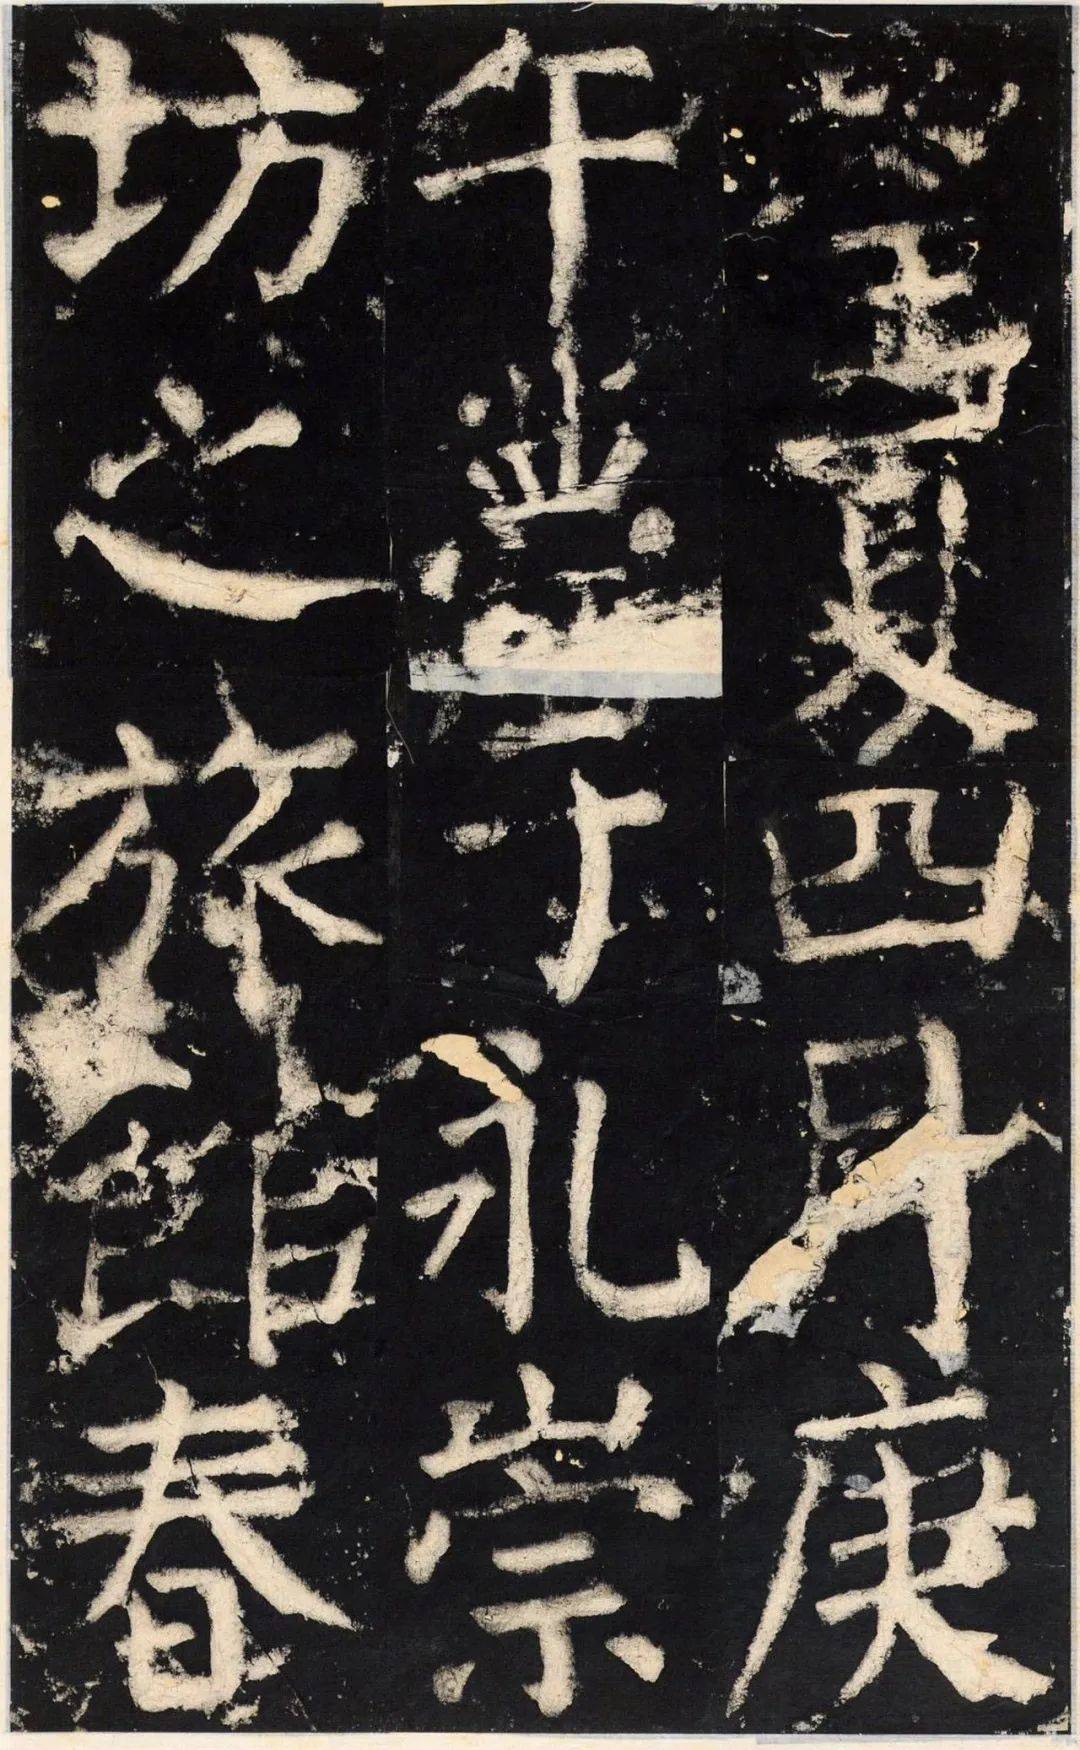 望夏四月庚
午薨于永崇
坊之旅館春